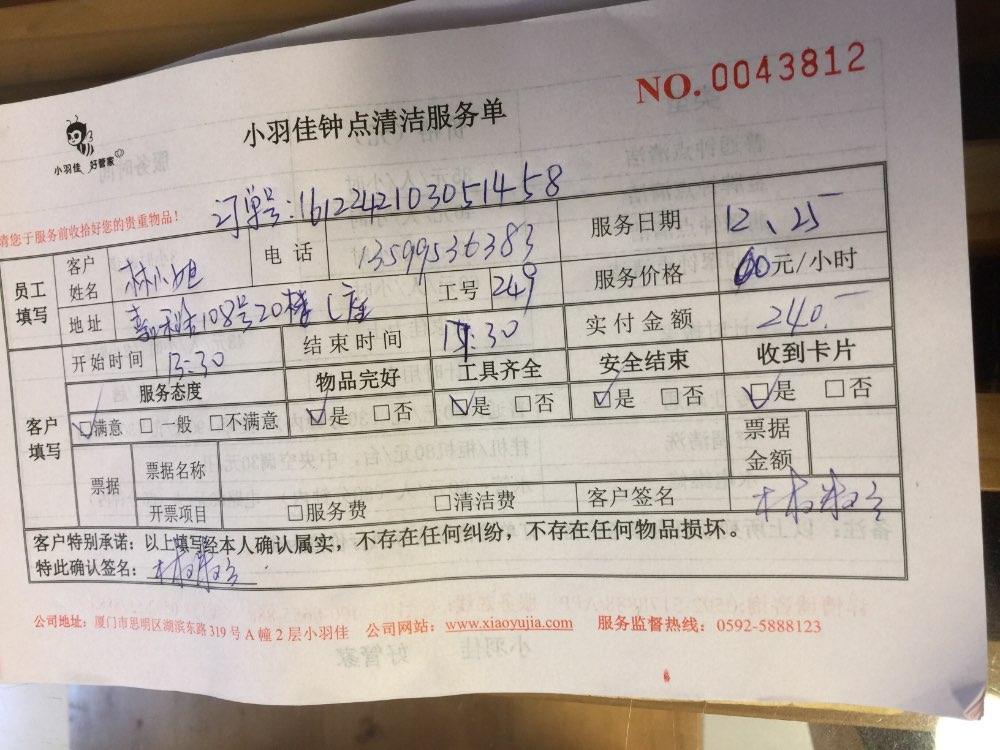 NO.0043812
小羽佳钟点清洁服务单
小羽佳 好管家
订单号:1612242103051458
请您于服务前收拾好您的贵重物品！
员工填写 客户姓名 林小姐 电话 13599536383 服务日期 12、25
地址 嘉 108号20楼C座 工号 249 服务价格 60元/小时
开始时间 13:30 结束时间 17:30 实付金额 240.
客户填写 服务态度 物品完好 工具齐全 安全结束 收到卡片
☑满意 □一般 □不满意 ☑是 □否 ☑是 □否 ☑是 □否 ☑是 □否
票据 票据名称 票据金额
开票项目 □服务费 □清洁费 客户签名
客户特别承诺：以上填写经本人确认属实，不存在任何纠纷，不存在任何物品损坏。
特此确认签名：
公司地址：厦门市思明区湖滨东路319号A幢2层小羽佳 公司网站：www.xiaoyujia.com 服务监督热线：0592-5888123